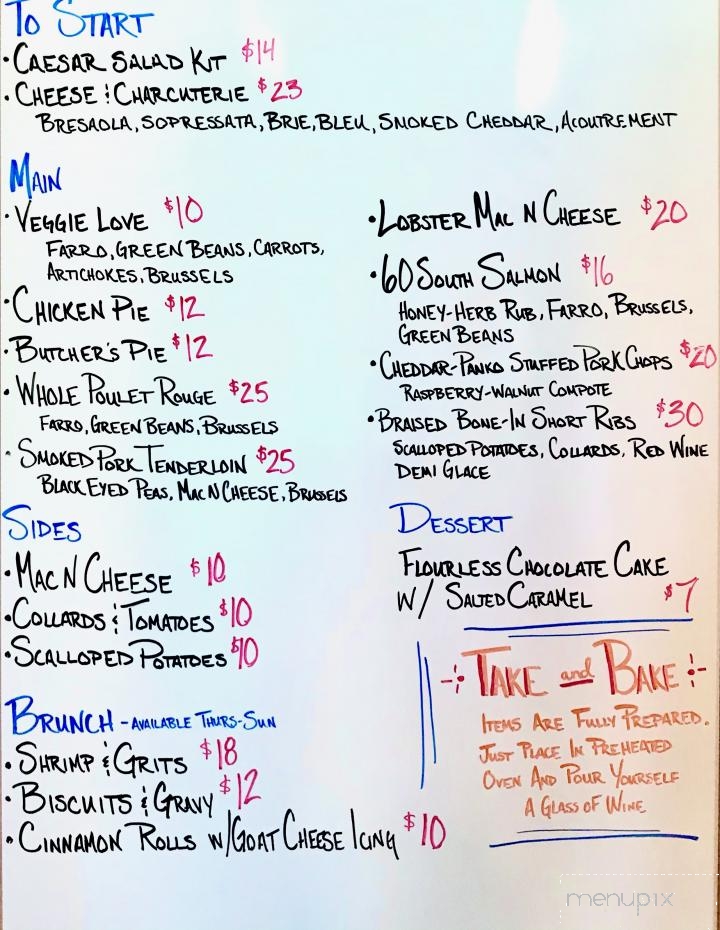 To Start
• Caesar Salad Kit $14
• Cheese & Charcuterie $23
Bresaola, Sopressata, Brie, Bleu, Smoked Cheddar, Acoutrement
Main
• Veggie Love $10
Farro, Green Beans, Carrots,
Artichokes, Brussels
• Chicken Pie $12
• Butcher's Pie $12
• Whole Poulet Rouge $25
Farro, Green Beans, Brussels
• Smoked Pork Tenderloin $25
Black Eyed Peas, Mac N Cheese, Brussels
• Lobster Mac N Cheese $20
• 60 South Salmon $16
Honey-Herb Rub, Farro, Brussels,
Green Beans
• Cheddar-Panko Stuffed Pork Chops $20
Raspberry-Walnut Compote
• Braised Bone-In Short Ribs $30
Scalloped Potatoes, Collards, Red Wine
Demi Glace
Sides
• Mac N Cheese $10
• Collards & Tomatoes $10
• Scalloped Potatoes $10
Dessert
Flourless Chocolate Cake
w/ Salted Caramel $7
Brunch - Available Thurs-Sun
• Shrimp & Grits $18
• Biscuits & Gravy $12
• Cinnamon Rolls w/Goat Cheese Icing $10
Take and Bake
Items Are Fully Prepared.
Just Place In Preheated
Oven And Pour Yourself
A Glass of Wine
menupix